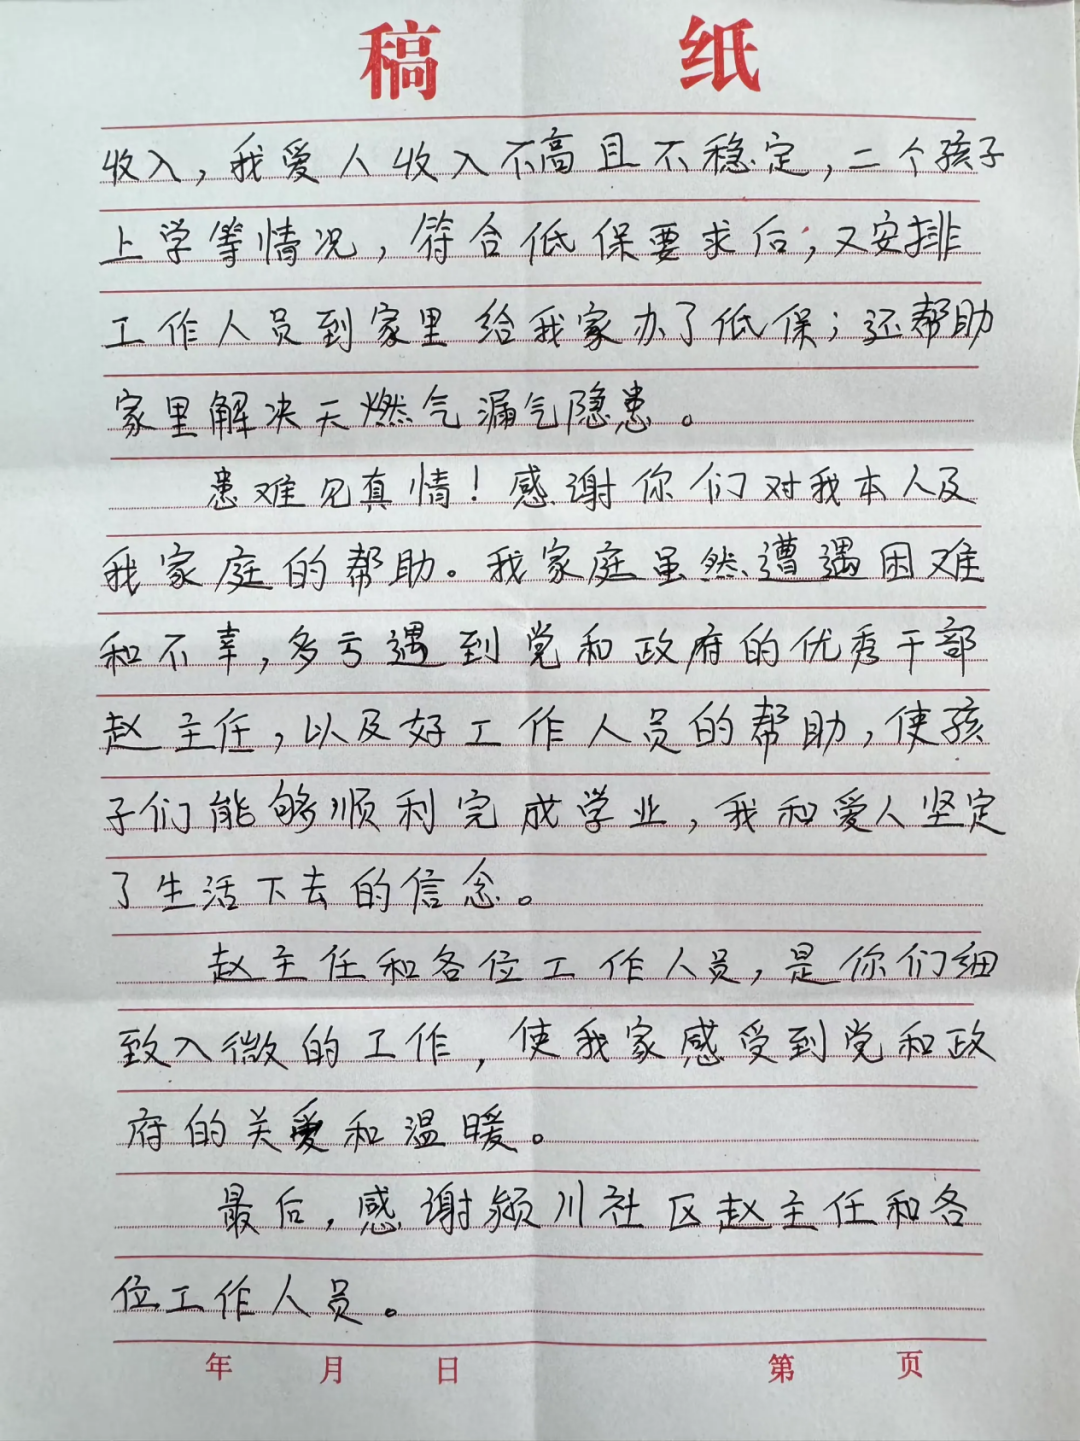 稿 纸
收入，我爱人收入不高且不稳定，二个孩子
上学等情况，符合低保要求后；又安排
工作人员到家里给我家办了低保；还帮助
家里解决天燃气漏气隐患。
患难见真情！感谢你们对我本人及
我家庭的帮助。我家庭虽然遭遇困难
和不幸，多亏遇到党和政府的优秀干部
赵主任，以及好工作人员的帮助，使孩
子们能够顺利完成学业，我和爱人坚定
了生活下去的信念。
赵主任和各位工作人员，是你们细
致入微的工作，使我家感受到党和政
府的关爱和温暖。
最后，感谢颍川社区赵主任和各
位工作人员。
年 月 日 第 页